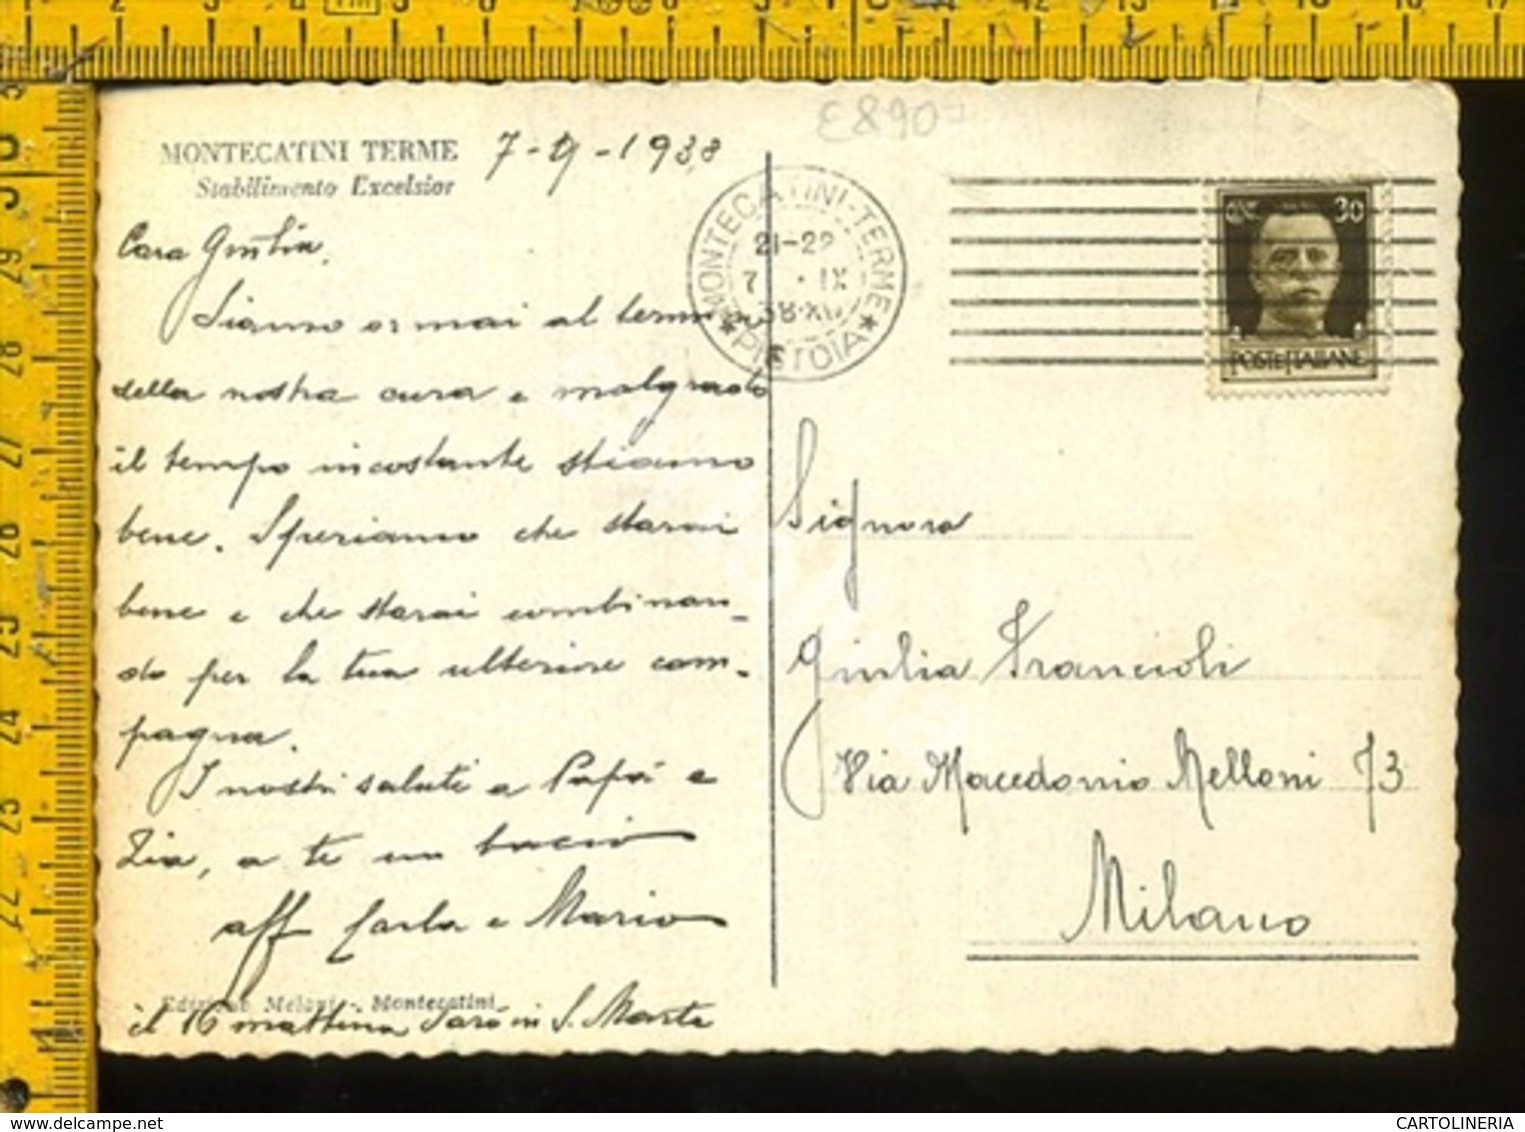 E890
MONTECATINI TERME
Stabilimento Excelsior
7-9-1938
Cara Giulia,
Siamo ormai al termine
della nostra cura e malgrado
il tempo incostante stiamo
bene. Speriamo che starai
bene e che starai combinan-
do per la tua ulteriore cam-
pagna.
I nostri saluti a Papà e
Zia, a te un bacio
aff Carla e Mario
Montecatini
il 16 mattina sarò in S. Marta
MONTECATINI-TERME
21-22
7 · IX
38·XVI
* PISTOIA *
CENT 30
POSTE ITALIANE
Signora
Giulia Francioli
Via Macedonio Melloni 73
Milano
delcampe.net
CARTOLINERIA